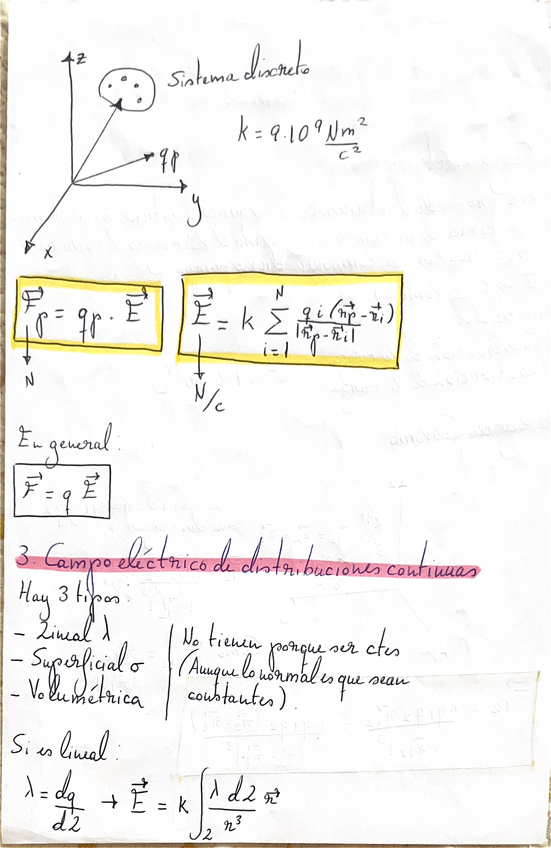 z
Sistema discreto
k = 9·10⁹ Nm²/c²
qp
y
x
F⃗p = qp · E⃗
E⃗ = k ∑ᵢ₌₁ᴺ qi (r⃗p - r⃗i) / |r⃗p - r⃗i|
N
N/c
En general:
F⃗ = q E⃗
3. Campo eléctrico de distribuciones continuas
Hay 3 tipos:
- Lineal λ
- Superficial σ
- Volumétrica
No tienen porque ser ctes
(Aunque lo normal es que sean
constantes).
Si es lineal:
λ = dq/dL → E⃗ = k ∫L λ dL r⃗ / r³